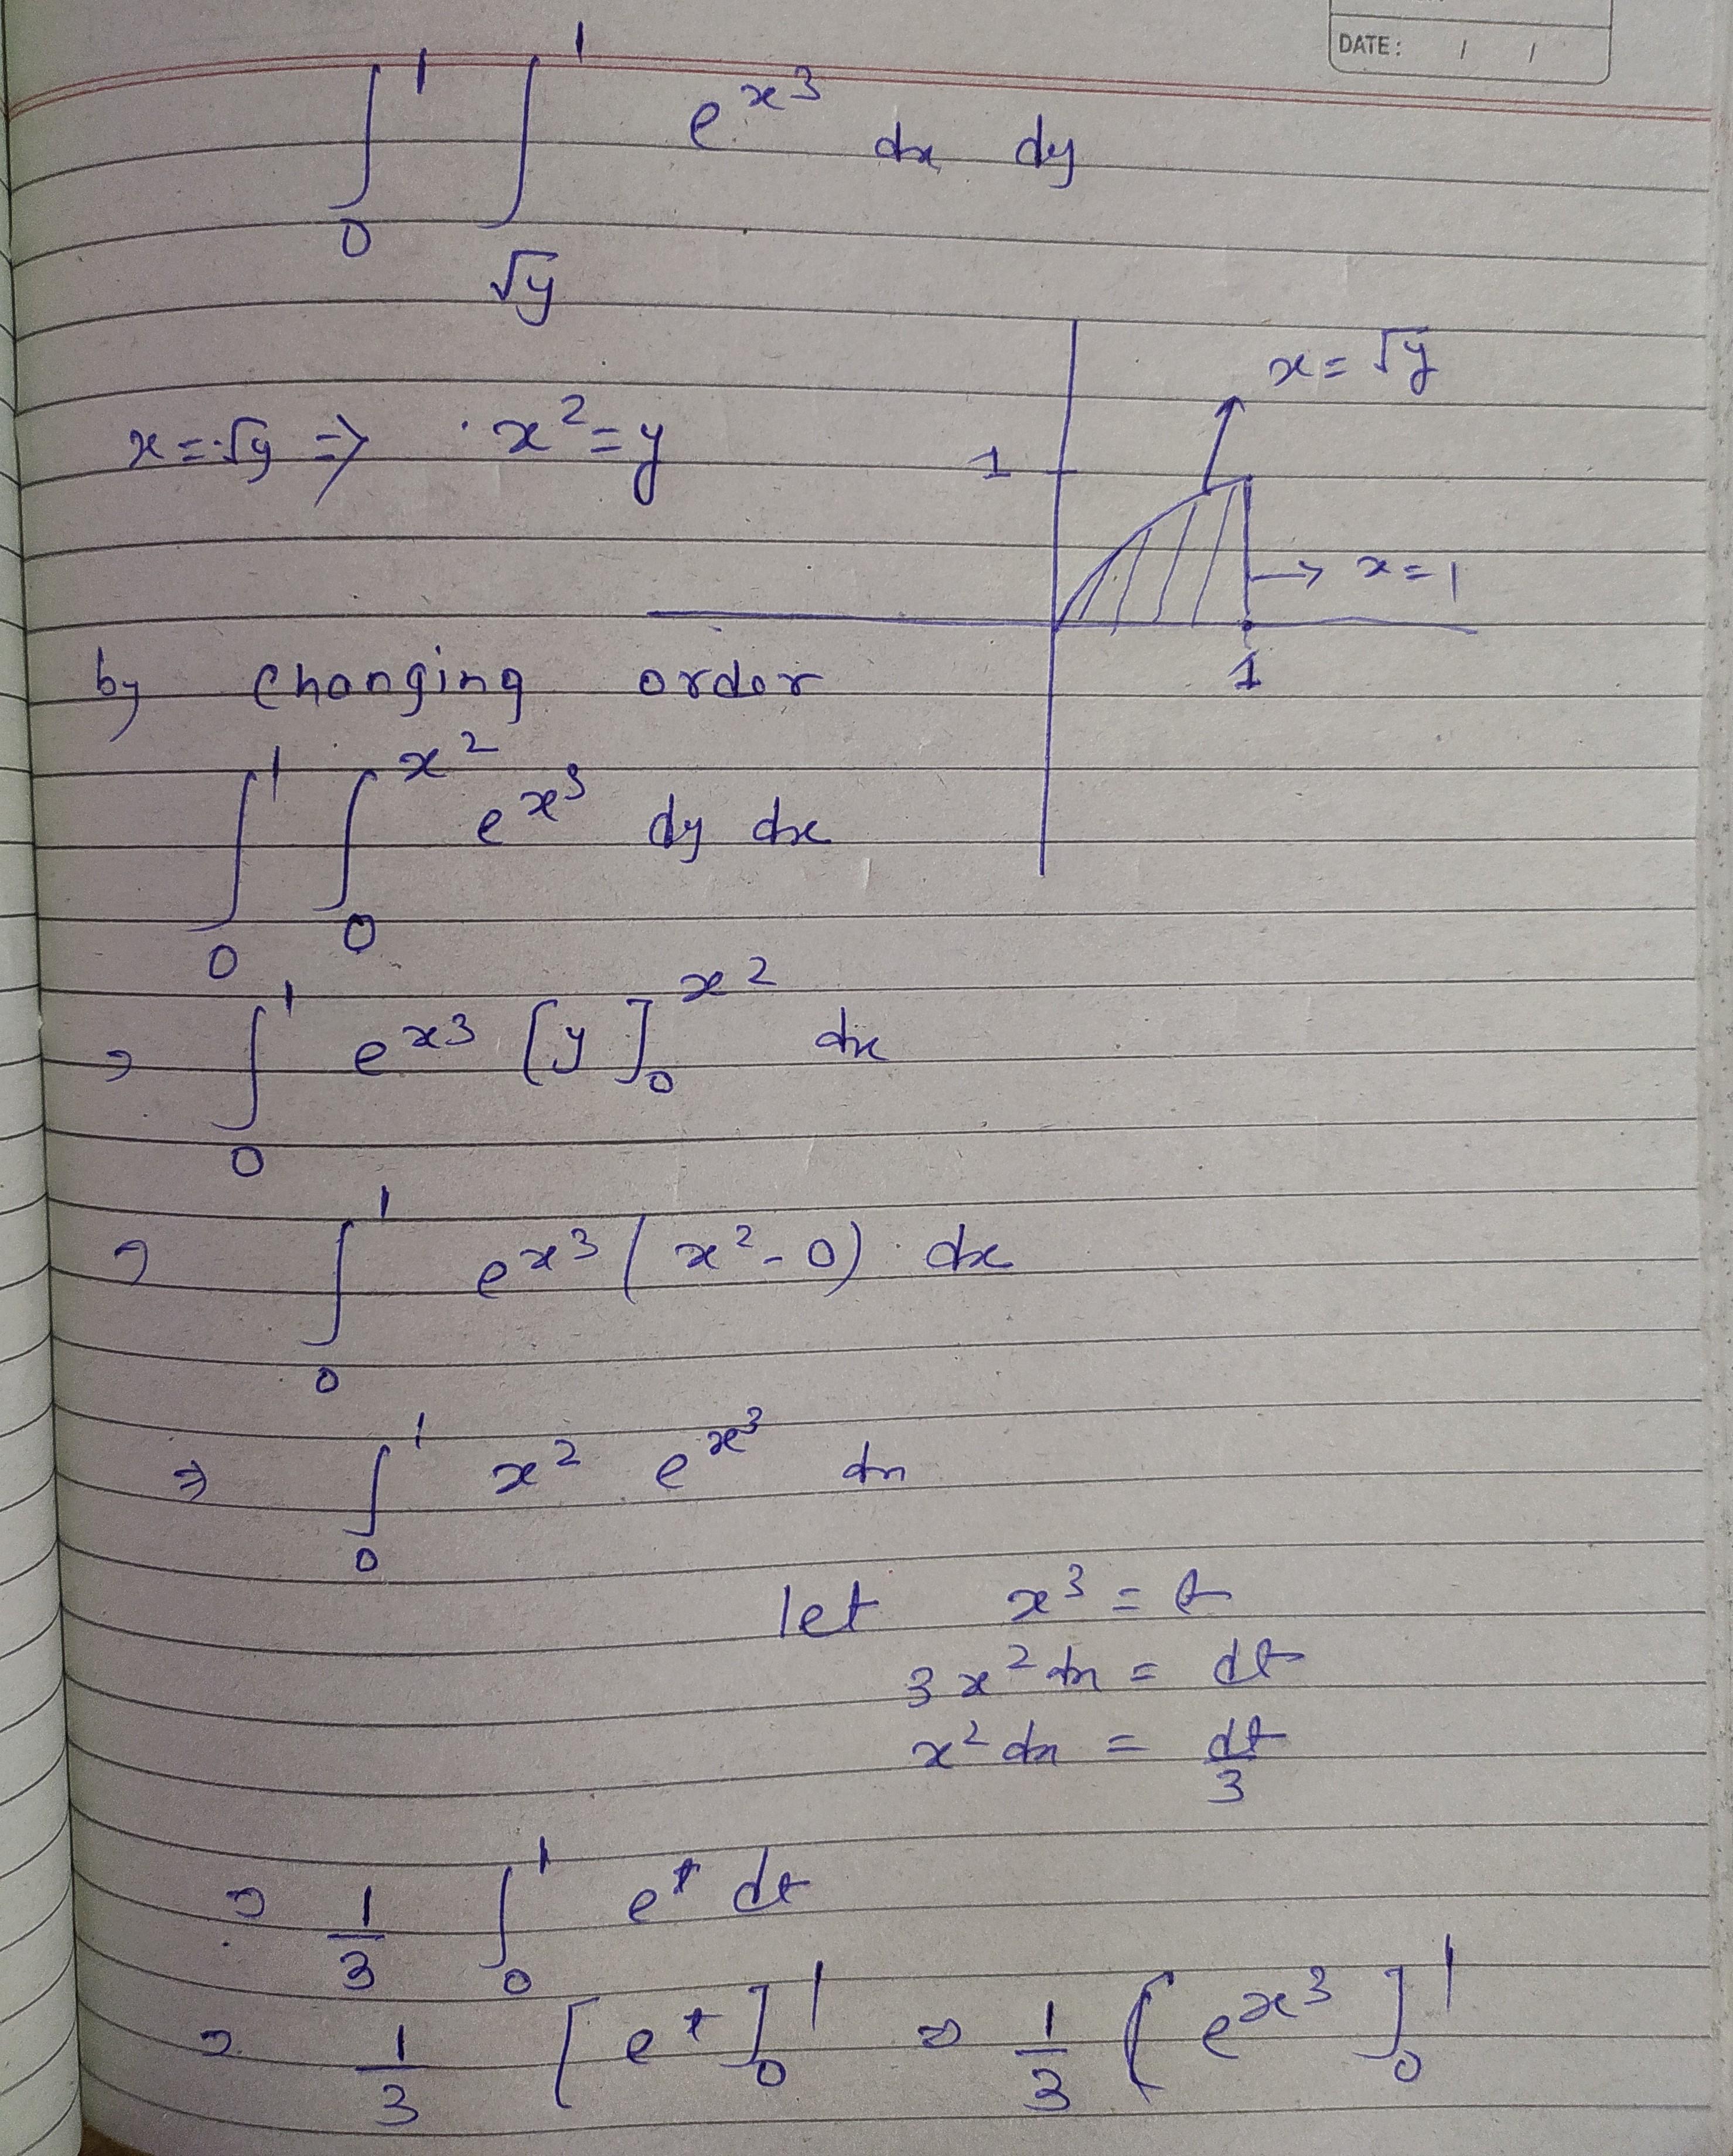 DATE: / /
∫₀¹ ∫_√y ¹ e^x³ dx dy
x = √y ⇒ x² = y
x = √y
1
→ x = 1
1
by changing order
∫₀¹ ∫₀^x² e^x³ dy dx
⇒ ∫₀¹ e^x³ [y]₀^x² dx
⇒ ∫₀¹ e^x³ (x² - 0) dx
⇒ ∫₀¹ x² e^x³ dx
let x³ = t
3x² dx = dt
x² dx = dt/3
⇒ 1/3 ∫₀¹ e^t dt
⇒ 1/3 [e^t]₀¹ ⇒ 1/3 [e^x³]₀¹